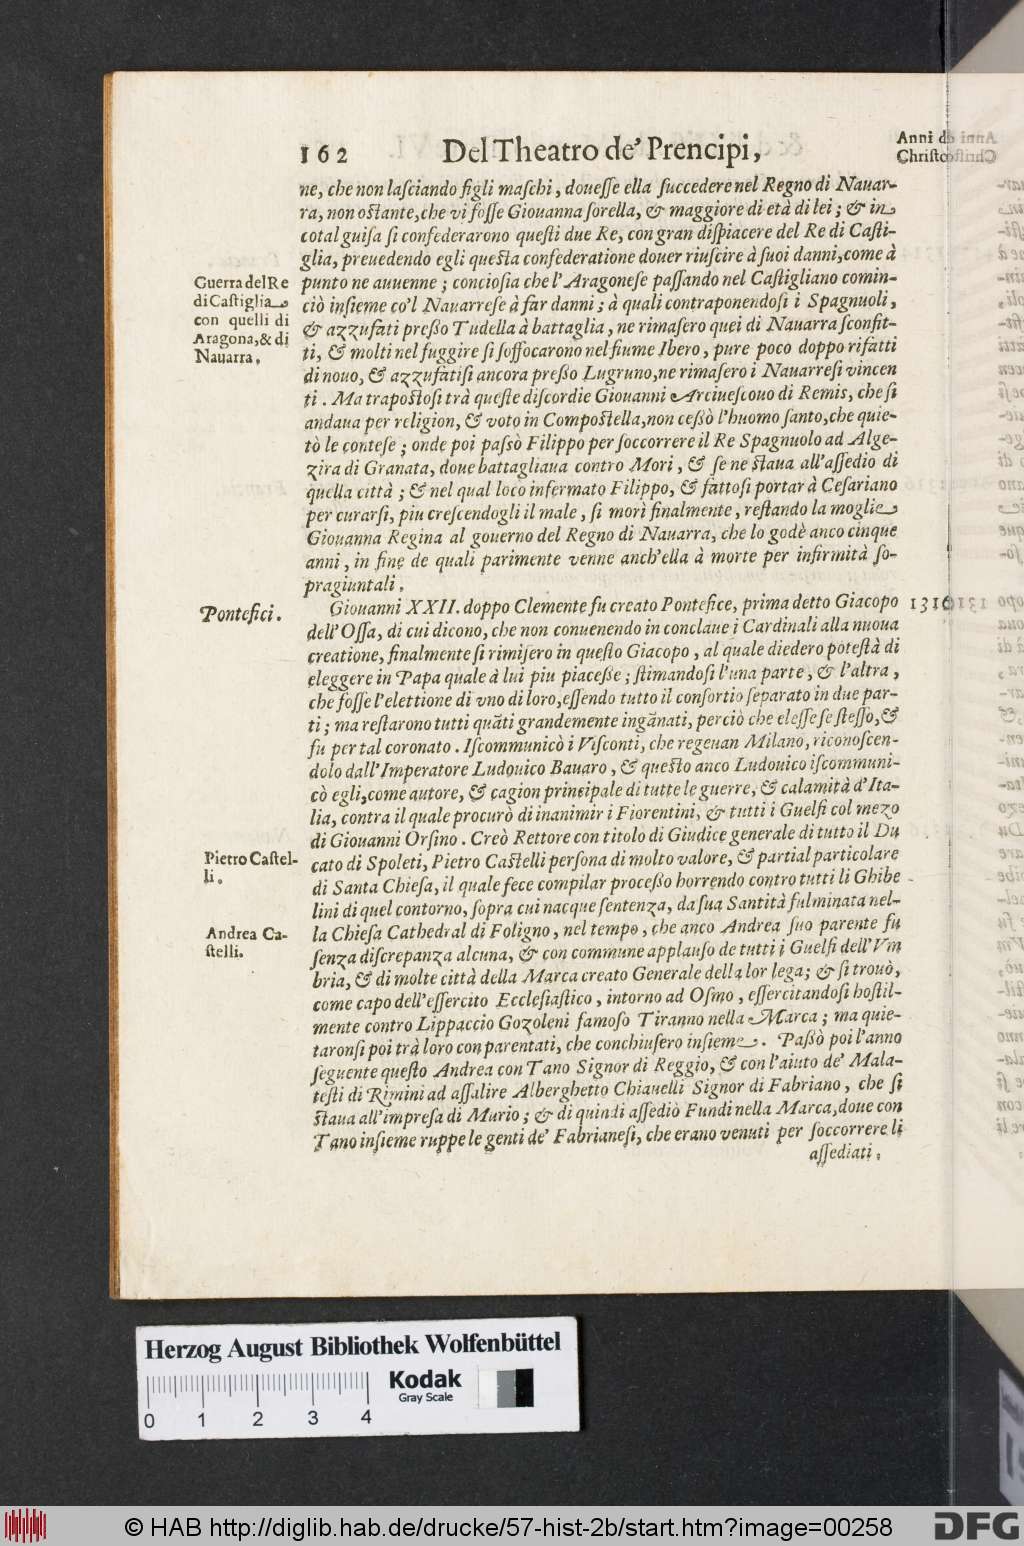 162 Del Theatro de' Prencipi, Anni di
Christo
ne, che non laſciando figli maſchi, doueſſe ella ſuccedere nel Regno di Nauar-
ra, non oſtante, che vi foſſe Giouanna ſorella, & maggiore di età di lei; & in
cotal guiſa ſi confederarono queſti due Re, con gran diſpiacere del Re di Caſti-
glia, preuedendo egli queſta confederatione douer riuſcire à ſuoi danni, come à
Guerra del Re
di Caſtiglia
con quelli di
Aragona, & di
Nauarra.
punto ne auuenne; concioſia che l'Aragoneſe paſſando nel Caſtigliano comin-
ciò inſieme co'l Nauarreſe à far danni; à quali contraponendoſi i Spagnuoli,
& azzufati preſſo Tudella à battaglia, ne rimaſero quei di Nauarra ſconfit-
ti, & molti nel fuggire ſi ſoffocarono nel fiume Ibero, pure poco doppo rifatti
di nouo, & azzufatiſi ancora preſſo Lugruno, ne rimaſero i Nauarreſi vincen
ti. Ma trapoſtoſi trà queſte diſcordie Giouanni Arciueſcouo di Remis, che ſi
andaua per religion, & voto in Compoſtella, non ceſſò l'huomo ſanto, che quie-
tò le conteſe; onde poi paſsò Filippo per ſoccorrere il Re Spagnuolo ad Alge-
zira di Granata, doue battagliaua contro Mori, & ſe ne ſtaua all'aſſedio di
quella città; & nel qual loco infermato Filippo, & fattoſi portar à Ceſariano
per curarſi, piu creſcendogli il male, ſi morì finalmente, reſtando la moglie
Giouanna Regina al gouerno del Regno di Nauarra, che lo godè anco cinque
anni, in fine de quali parimente venne anch'ella à morte per infirmità ſo-
pragiuntali.
Pontefici.
Giouanni XXII. doppo Clemente fu creato Pontefice, prima detto Giacopo 1316
dell'Oſſa, di cui dicono, che non conuenendo in conclaue i Cardinali alla nuoua
creatione, finalmente ſi rimiſero in queſto Giacopo, al quale diedero poteſtà di
eleggere in Papa quale à lui piu piaceſſe; ſtimandoſi l'una parte, & l'altra,
che foſſe l'elettione di vno di loro, eſſendo tutto il conſortio ſeparato in due par-
ti; ma reſtarono tutti quãti grandemente ingãnati, perciò che eleſſe ſe ſteſſo, &
fu per tal coronato. Iſcommunicò i Viſconti, che regeuan Milano, riconoſcen-
dolo dall'Imperatore Ludouico Bauaro, & queſto anco Ludouico iſcommuni-
cò egli, come autore, & cagion principale di tutte le guerre, & calamità d'Ita-
lia, contra il quale procurò di inanimir i Fiorentini, & tutti i Guelfi col mezo
di Giouanni Orſino. Creò Rettore con titolo di Giudice generale di tutto il Du
Pietro Caſtel-
li.
cato di Spoleti, Pietro Caſtelli perſona di molto valore, & partial particolare
di Santa Chieſa, il quale fece compilar proceſſo horrendo contro tutti li Ghibe
lini di quel contorno, ſopra cui nacque ſentenza, da ſua Santità fulminata nel-
Andrea Ca-
ſtelli.
la Chieſa Cathedral di Foligno, nel tempo, che anco Andrea ſuo parente fu
ſenza diſcrepanza alcuna, & con commune applauſo de tutti i Guelfi dell'Vm
bria, & di molte città della Marca creato Generale della lor lega; & ſi trouò,
come capo dell'eſſercito Eccleſiaſtico, intorno ad Oſmo, eſſercitandoſi hoſtil-
mente contro Lippaccio Gozoleni famoſo Tiranno nella Marca; ma quie-
taronſi poi trà loro con parentati, che conchiuſero inſieme. Paſsò poi l'anno
ſeguente queſto Andrea con Tano Signor di Reggio, & con l'aiuto de' Mala-
teſti di Rimini ad aſſalire Alberghetto Chiauelli Signor di Fabriano, che ſi
ſtaua all'impreſa di Murio; & di quindi aſſediò Fundi nella Marca, doue con
Tano inſieme ruppe le genti de' Fabrianeſi, che erano venuti per ſoccorrere li
aſſediati.
Herzog August Bibliothek Wolfenbüttel
0 1 2 3 4
Kodak
Gray Scale
© HAB http://diglib.hab.de/drucke/57-hist-2b/start.htm?image=00258
DFG